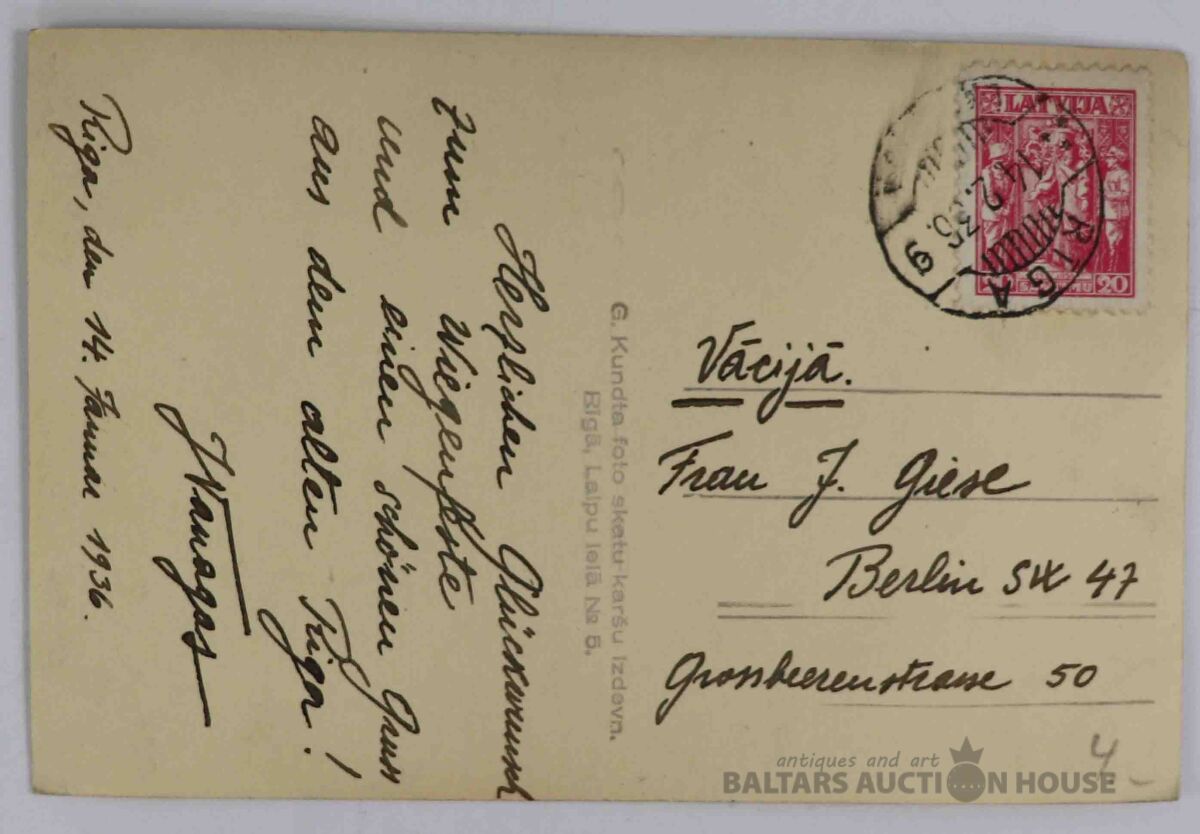 Herzlichen Glückwunsch
zum Wiegenfeste
und einen schönen Gruss
aus dem alten Riga!
JVanagas
Riga, den 14. Januar 1936.
G. Kundta foto skatu-karšu izdevn.
Rīgā, Laipu ielā № 5.
LATVIJA
20
14.2.36.
RIGA 9
Vācijā.
Frau J. Giese
Berlin SW 47
Grossbeerenstrasse 50
4
antiques and art
BALTARS AUCTION HOUSE